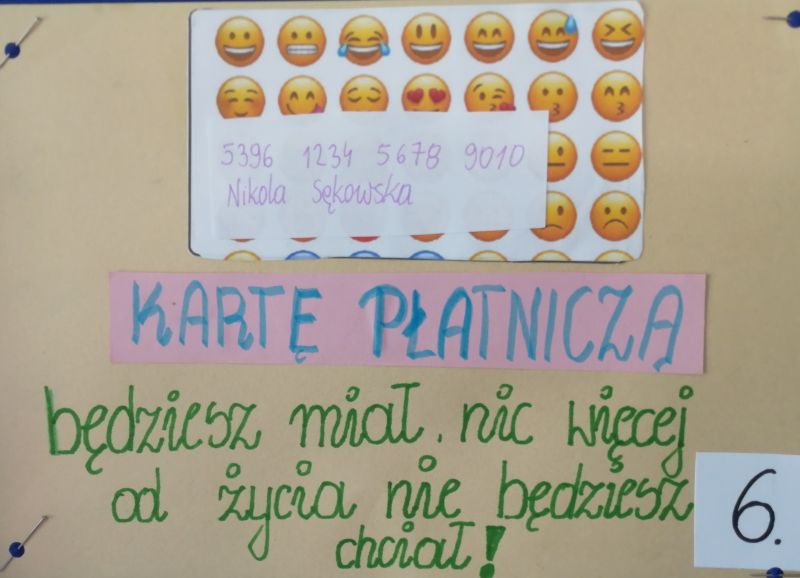 5396 1234 5678 9010
Nikola Sękowska
KARTĘ PŁATNICZĄ
będziesz miał, nic więcej
od życia nie będziesz
chciał!
6.